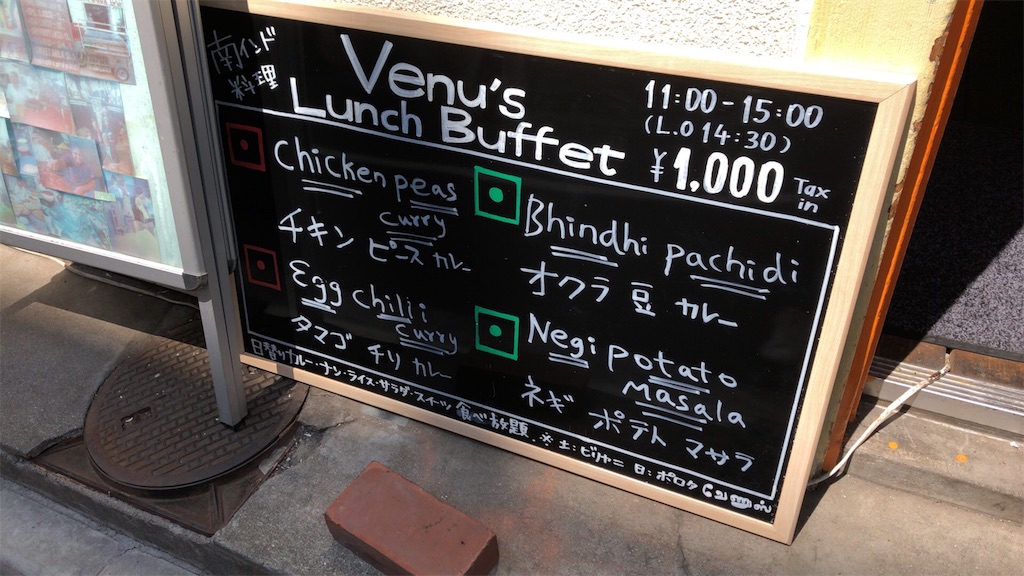 南インド
料理
Venu's
Lunch Buffet
11:00-15:00
(L.O 14:30)
¥1,000 Tax in
Chicken peas
curry
チキン ピース カレー
Egg chilii
curry
タマゴ チリ カレー
Bhindhi pachidi
オクラ 豆 カレー
Negi potato
Masala
ネギ ポテト マサラ
日替りカレー・ナン・ライス・サラダ・スイーツ 食べ放題 ※ 土:ビリヤニ 日:ポロタ